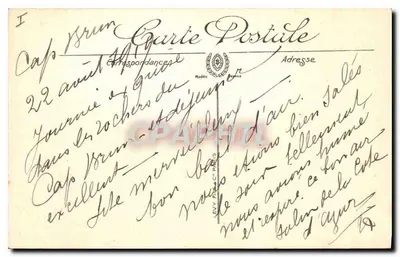 I
Carte Postale
Correspondance
Adresse
Modèle
Cap Brun
22 août 19
Journée
dans les rochers du
Cap Brun et déjeuner
excellent
Site merveilleux
bon bain d'air
nous étions bien salés
le soir tellement
nous avions humé
et respiré ce bon air
salin de la Côte
d'azur